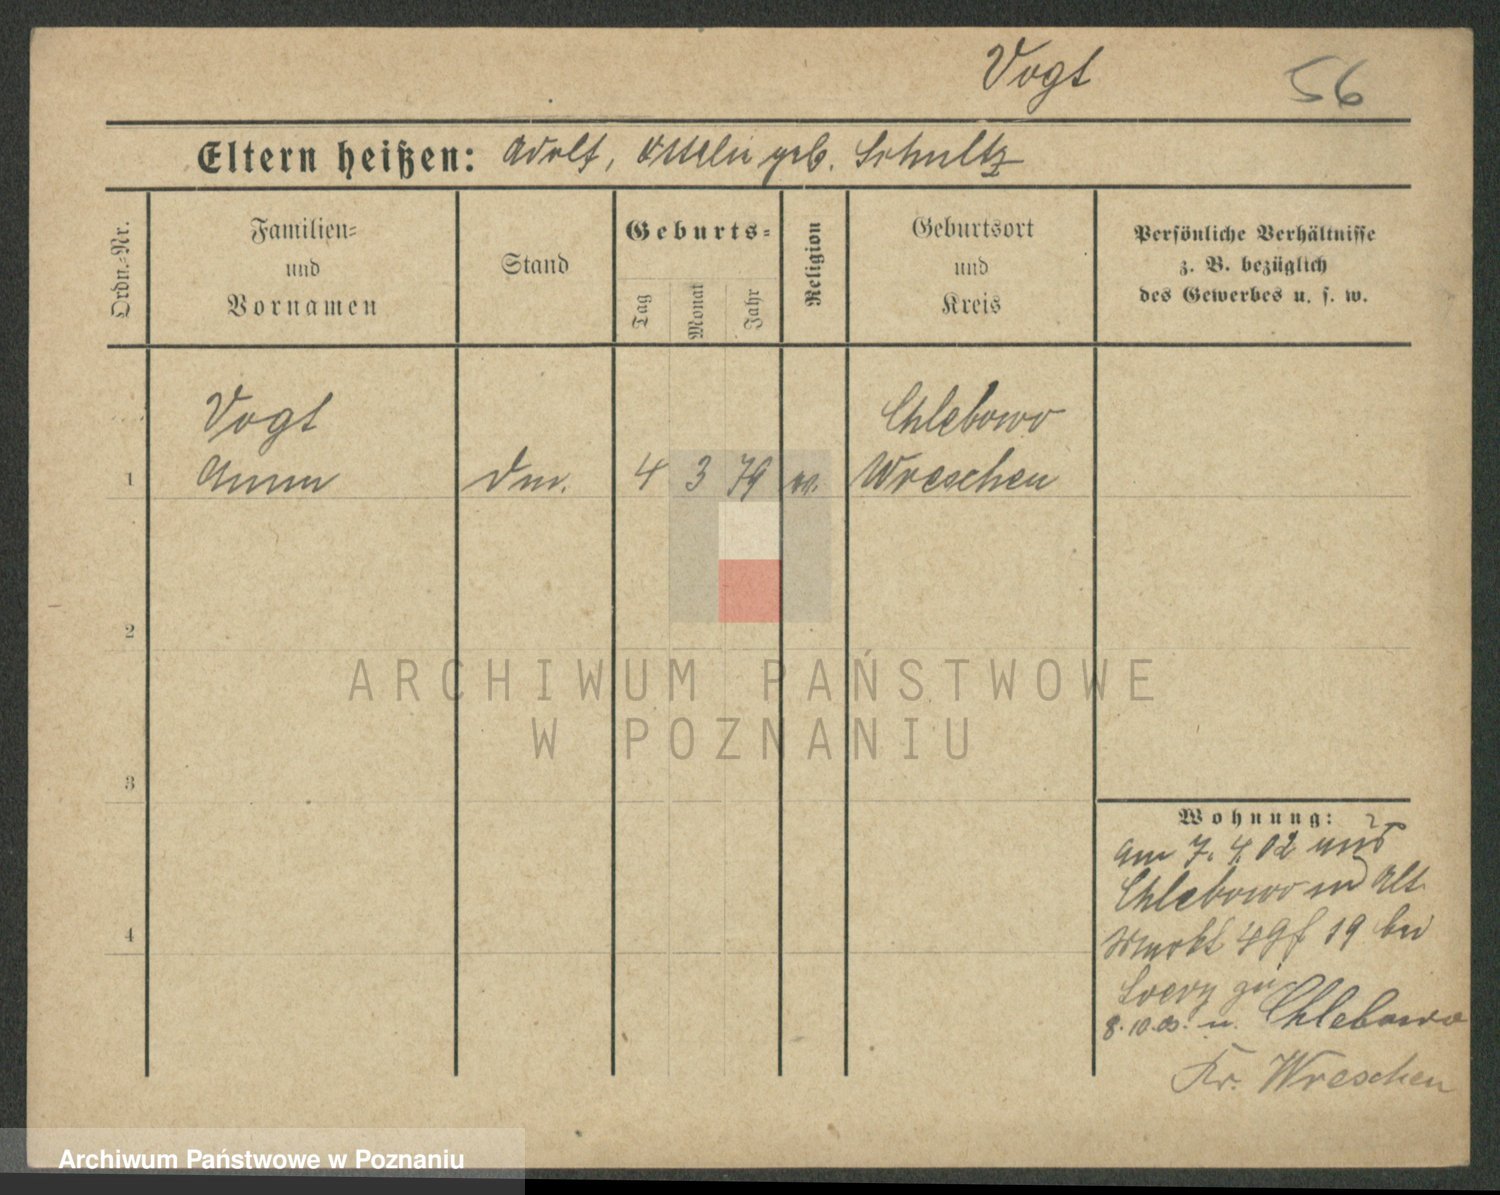 Vogt 56
Eltern heißen: Adolf, Ottilie geb. Schultz
Ordn.-Nr.
Familien-
und
Vornamen
Stand
Geburts-
Tag
Monat
Jahr
Religion
Geburtsort
und
Kreis
Persönliche Verhältnisse
z. B. bezüglich
des Gewerbes u. s. w.
Vogt Chlebowo
1 Anna 4 3 79 ev. Wreschen
2
ARCHIWUM PAŃSTWOWE
W POZNANIU
3
Wohnung:
am 7. 4. 02 aus
Chlebowo in Alt.
Markt 49 19 bei
zu
8. 10. n. Chlebowo
Kr. Wreschen
4
Archiwum Państwowe w Poznaniu